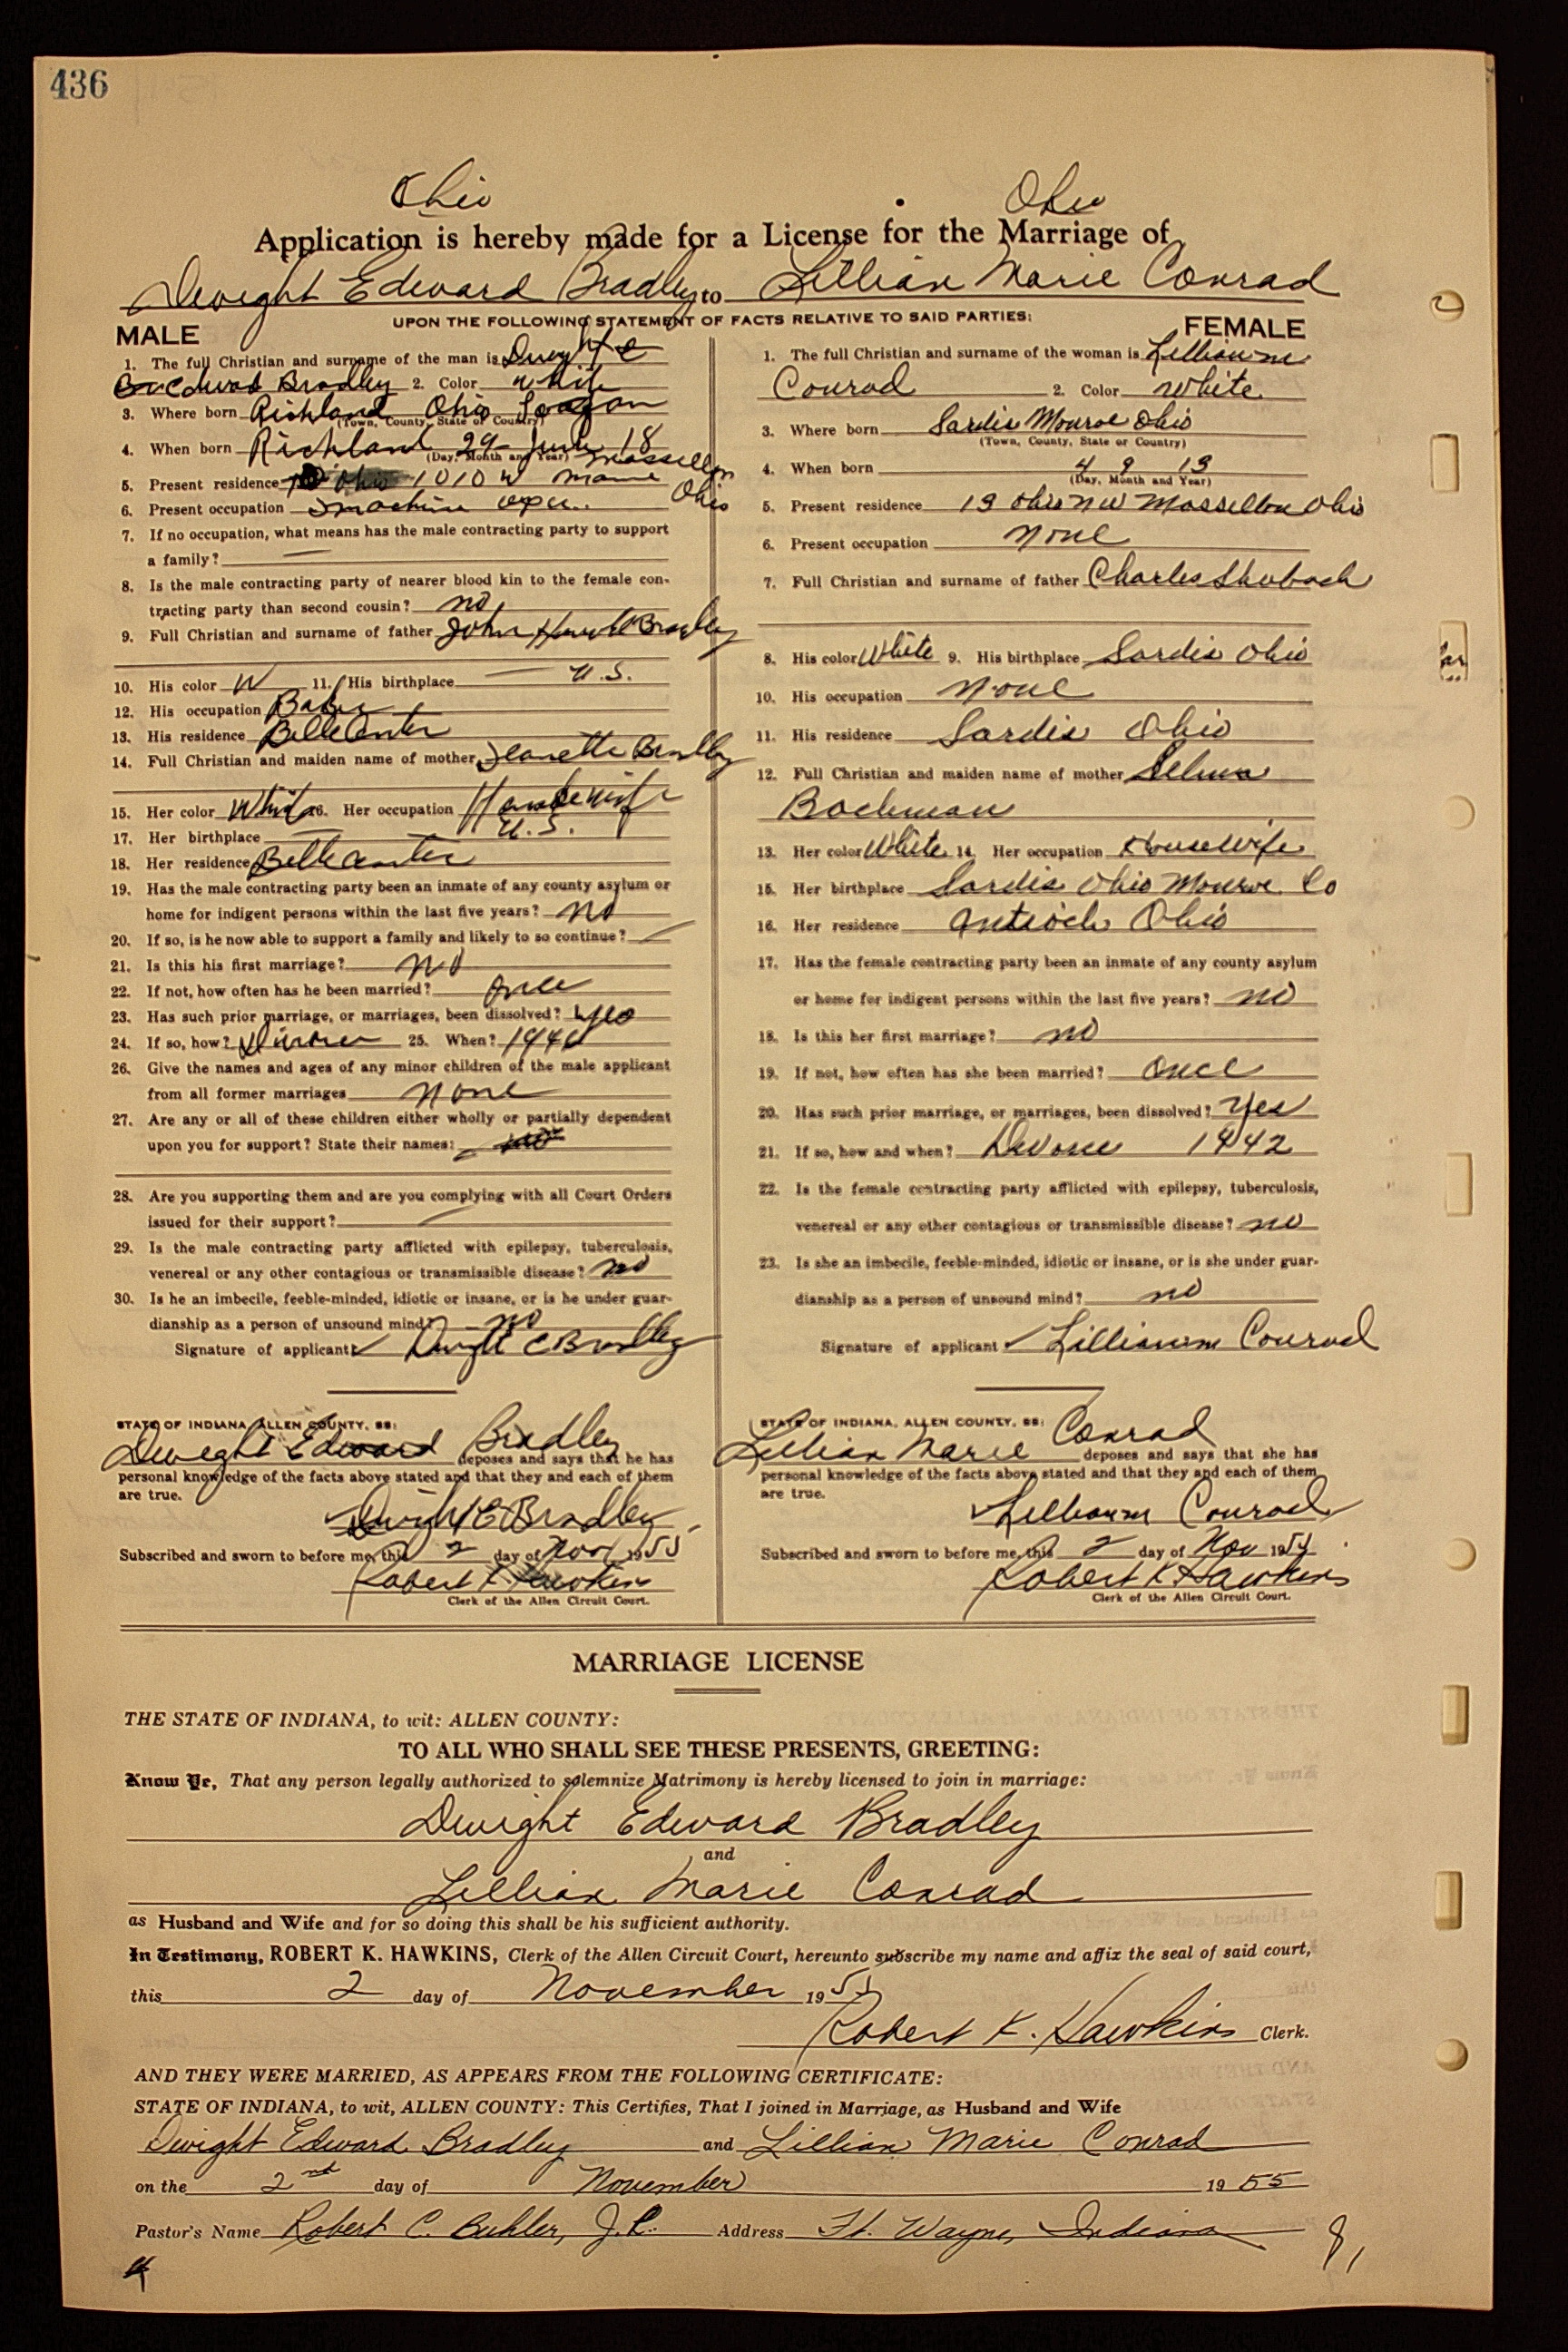 436
Ohio Ohio
Application is hereby made for a License for the Marriage of
Dwight Edward Bradley to Lillian Marie Conrad
UPON THE FOLLOWING STATEMENT OF FACTS RELATIVE TO SAID PARTIES:
MALE
1. The full Christian and surname of the man is Dwight
Edward Bradley 2. Color White
3. Where born Richland Ohio Logan
(Town, County, State or Country)
4. When born Richland 29 18
(Day, Month and Year)
Massillon
5. Present residence 1010 W
Ohio
6. Present occupation
7. If no occupation, what means has the male contracting party to support
a family? —
8. Is the male contracting party of nearer blood kin to the female con-
tracting party than second cousin? no
9. Full Christian and surname of father John Bradley
10. His color W 11. His birthplace — U.S.
12. His occupation
13. His residence Belle Center
14. Full Christian and maiden name of mother Jeanette Bradley
15. Her color White 16. Her occupation Housewife
17. Her birthplace — U.S.
18. Her residence Belle Center
19. Has the male contracting party been an inmate of any county asylum or
home for indigent persons within the last five years? no
20. If so, is he now able to support a family and likely to so continue? —
21. Is this his first marriage? no
22. If not, how often has he been married? once
23. Has such prior marriage, or marriages, been dissolved? yes
24. If so, how? Divorce 25. When?
26. Give the names and ages of any minor children of the male applicant
from all former marriages none
27. Are any or all of these children either wholly or partially dependent
upon you for support? State their names:
28. Are you supporting them and are you complying with all Court Orders
issued for their support? —
29. Is the male contracting party afflicted with epilepsy, tuberculosis,
venereal or any other contagious or transmissible disease? no
30. Is he an imbecile, feeble-minded, idiotic or insane, or is he under guar-
dianship as a person of unsound mind? no
Signature of applicant: Dwight E Bradley
STATE OF INDIANA, ALLEN COUNTY, SS:
Dwight Edward Bradley deposes and says that he has
personal knowledge of the facts above stated and that they and each of them
are true.
Dwight E Bradley
Subscribed and sworn to before me, this 2 day of Nov 1955
Robert K Hawkins
Clerk of the Allen Circuit Court.
FEMALE
1. The full Christian and surname of the woman is Lillian m
Conrad 2. Color White
3. Where born Sardis Monroe Ohio
(Town, County, State or Country)
4. When born 4 9 13
(Day, Month and Year)
5. Present residence 13 Ohio N W Massillon Ohio
6. Present occupation None
7. Full Christian and surname of father Charles
8. His color White 9. His birthplace Sardis Ohio
10. His occupation None
11. His residence Sardis Ohio
12. Full Christian and maiden name of mother Selma
Bachman
13. Her color White 14. Her occupation Housewife
15. Her birthplace Sardis Ohio Monroe Co
16. Her residence Antioch Ohio
17. Has the female contracting party been an inmate of any county asylum
or home for indigent persons within the last five years? no
18. Is this her first marriage? no
19. If not, how often has she been married? once
20. Has such prior marriage, or marriages, been dissolved? yes
21. If so, how and when? Divorce 1942
22. Is the female contracting party afflicted with epilepsy, tuberculosis,
venereal or any other contagious or transmissible disease? no
23. Is she an imbecile, feeble-minded, idiotic or insane, or is she under guar-
dianship as a person of unsound mind? no
Signature of applicant Lillian m Conrad
STATE OF INDIANA, ALLEN COUNTY, SS:
Lillian Marie Conrad deposes and says that she has
personal knowledge of the facts above stated and that they and each of them
are true.
Lillian m Conrad
Subscribed and sworn to before me, this 2 day of Nov 1955
Robert K Hawkins
Clerk of the Allen Circuit Court.
MARRIAGE LICENSE
THE STATE OF INDIANA, to wit: ALLEN COUNTY:
TO ALL WHO SHALL SEE THESE PRESENTS, GREETING:
Know Ye, That any person legally authorized to solemnize Matrimony is hereby licensed to join in marriage:
Dwight Edward Bradley
and
Lillian Marie Conrad
as Husband and Wife and for so doing this shall be his sufficient authority.
In Testimony, ROBERT K. HAWKINS, Clerk of the Allen Circuit Court, hereunto subscribe my name and affix the seal of said court,
this 2 day of November 1955
Robert K. Hawkins Clerk.
AND THEY WERE MARRIED, AS APPEARS FROM THE FOLLOWING CERTIFICATE:
STATE OF INDIANA, to wit, ALLEN COUNTY: This Certifies, That I joined in Marriage, as Husband and Wife
Dwight Edward Bradley and Lillian Marie Conrad
on the 2nd day of November 1955
Pastor's Name Robert C. Buhler, J.P. Address Ft. Wayne, Indiana